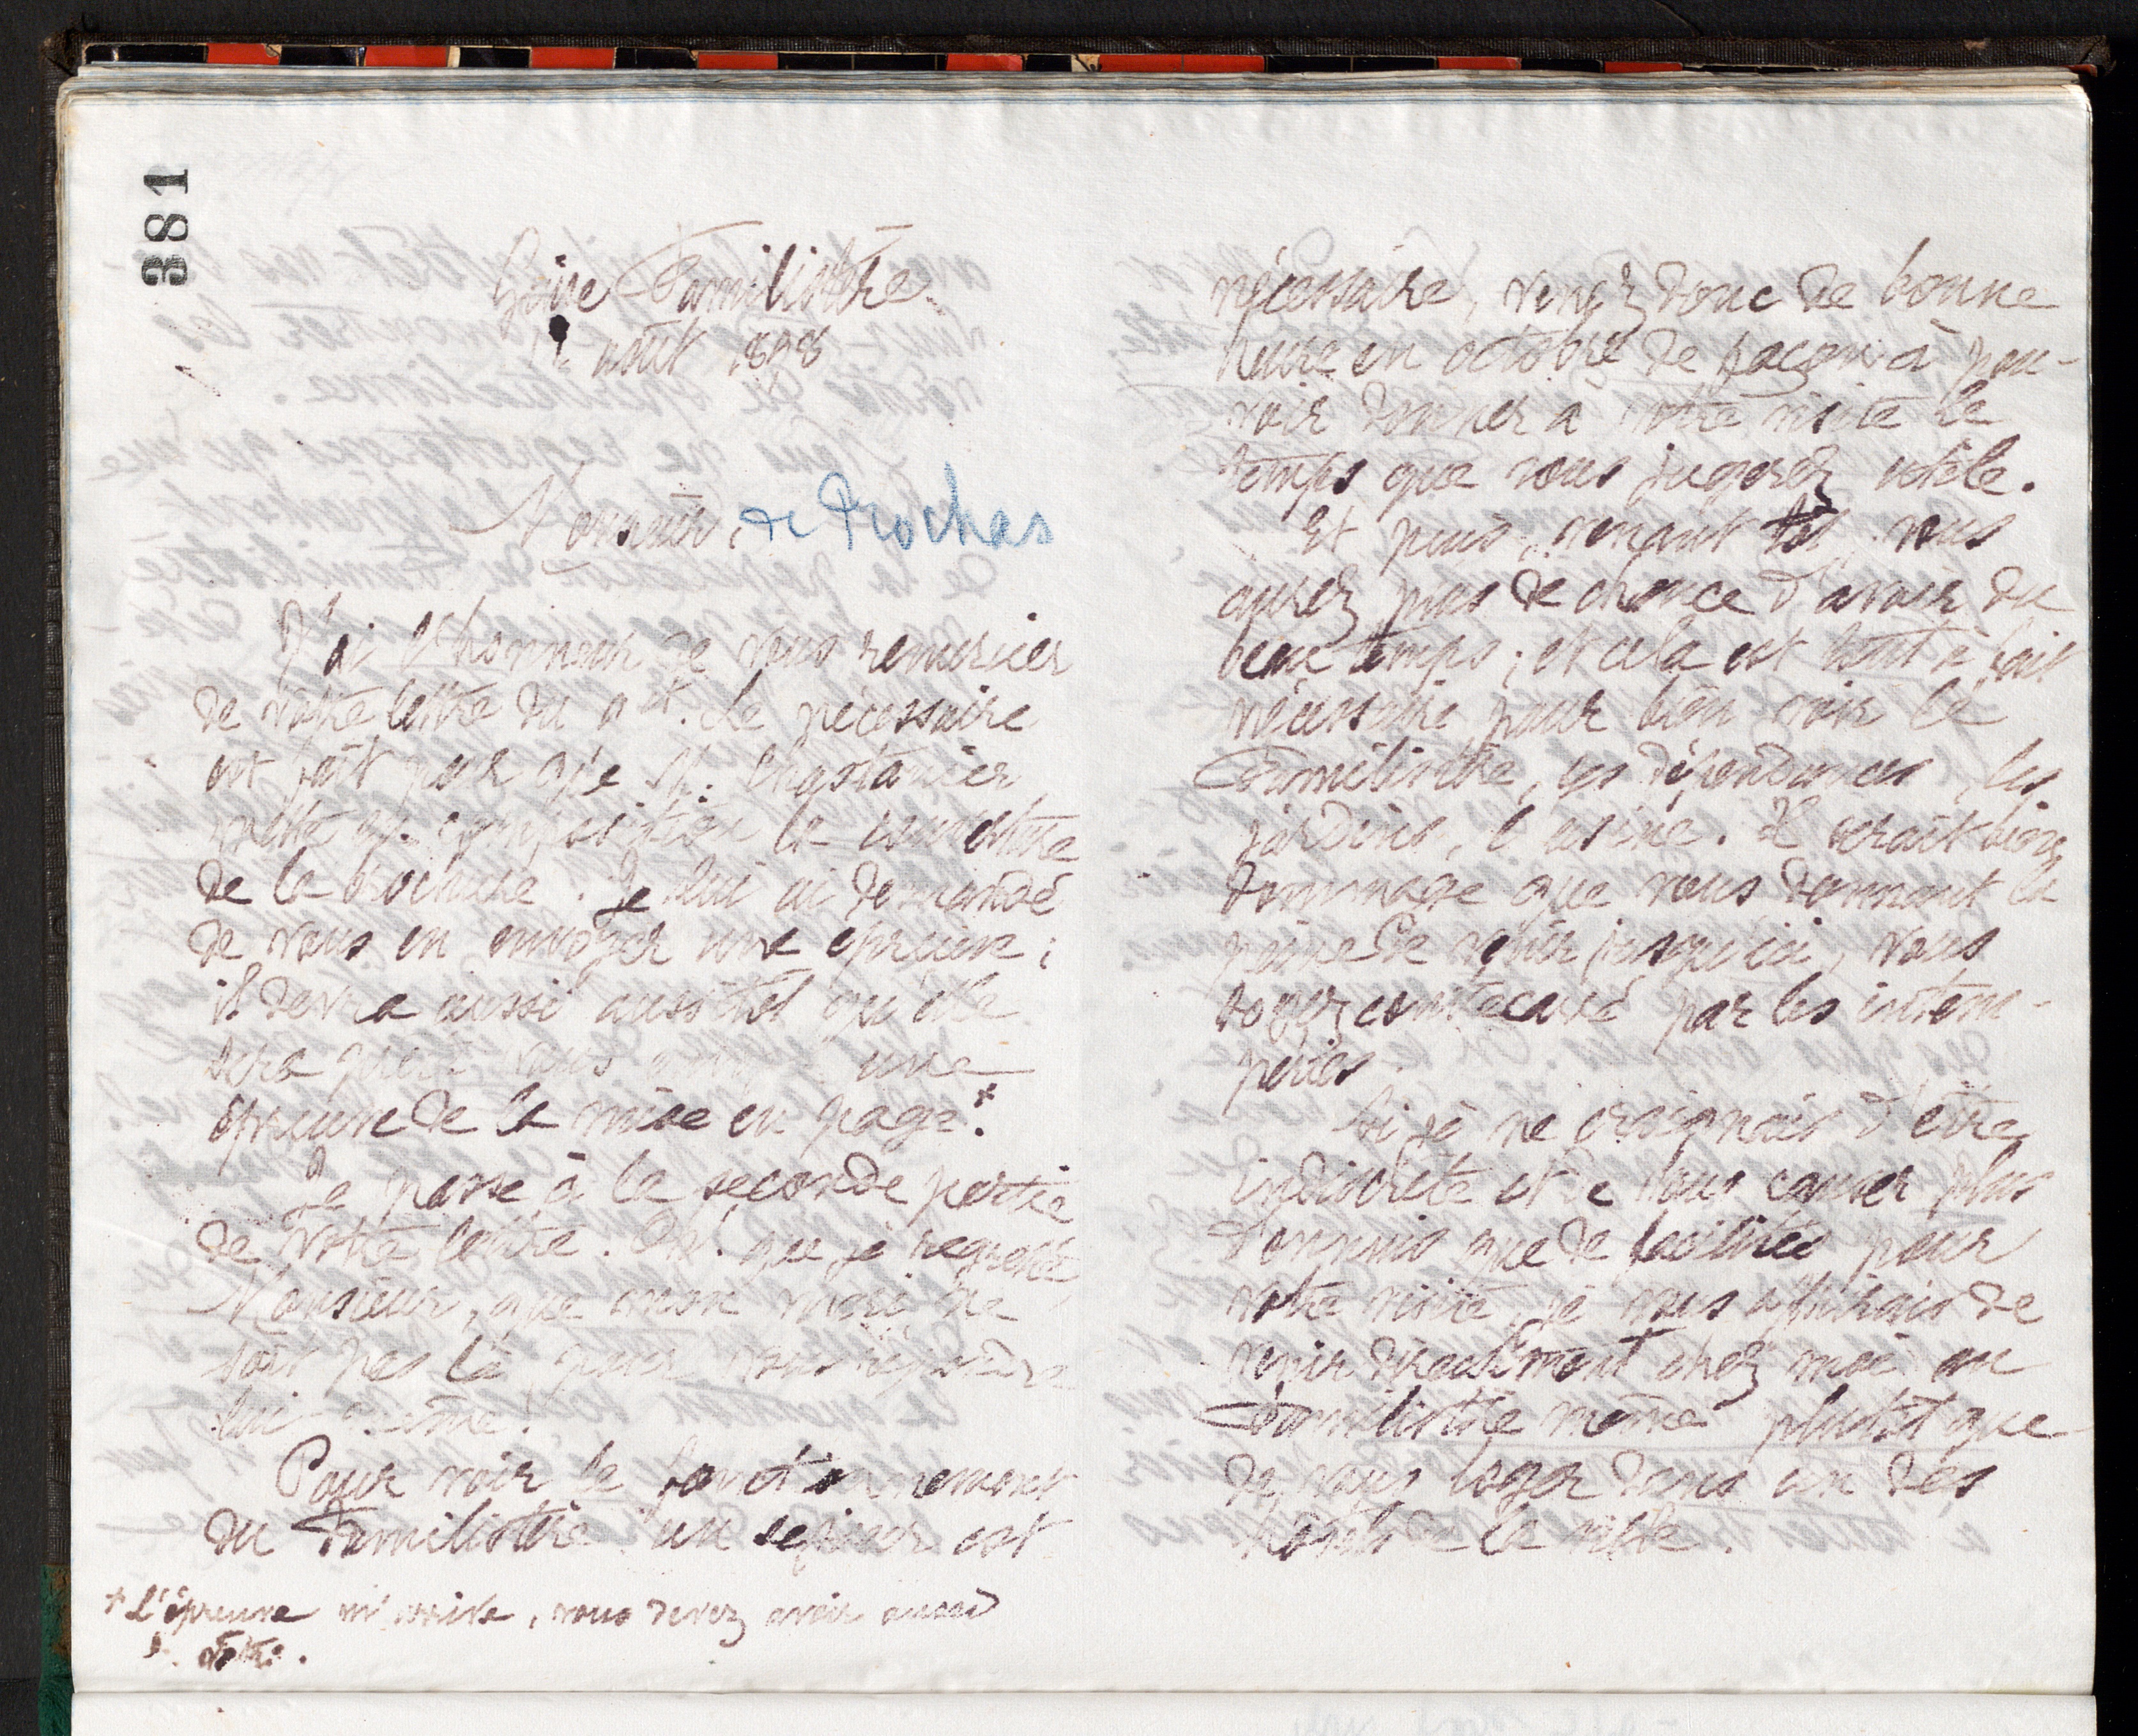 381
Guise Familistère
août 1898
Monsieur de Rochas
J'ai l'honneur de vous remercier
de votre lettre du 9 ct. Le nécessaire
est fait pour que M. Chastanier
mette en composition la couverture
de la brochure. Je lui ai demandé
de vous en envoyer une épreuve;
il devra aussi aussitôt qu'elle
sera prête, vous une
épreuve de la mise en page.*
Je passe à la seconde partie
de votre lettre. Oh! que je regrette
Monsieur, que mon mari ne
soit pas là pour vous répondre
lui-même!
Pour voir le fonctionnement
du Familistère un séjour est
* L'épreuve m'arrive, vous devez avoir aussi
la vôtre.
nécessaire, venez donc de bonne
heure en octobre de façon à pou-
voir donner à votre visite le
temps que vous jugerez utile.
Et puis, venant tôt, vous
aurez plus de chance d'avoir du
beau temps; et cela est tout à fait
nécessaire pour bien voir le
Familistère, ses dépendances, les
jardins, l'usine. Il serait bien
dommage que vous donnant la
peine de venir jusqu'ici, vous
soyez contrecarré par les intem-
péries.
Si je ne craignais d'être
indiscrète et de vous causer plus
d'ennuis que de facilités pour
votre visite, je vous offrirais de
venir directement chez moi au
Familistère même plutôt que
de vous loger dans un des
hôtels de la ville.